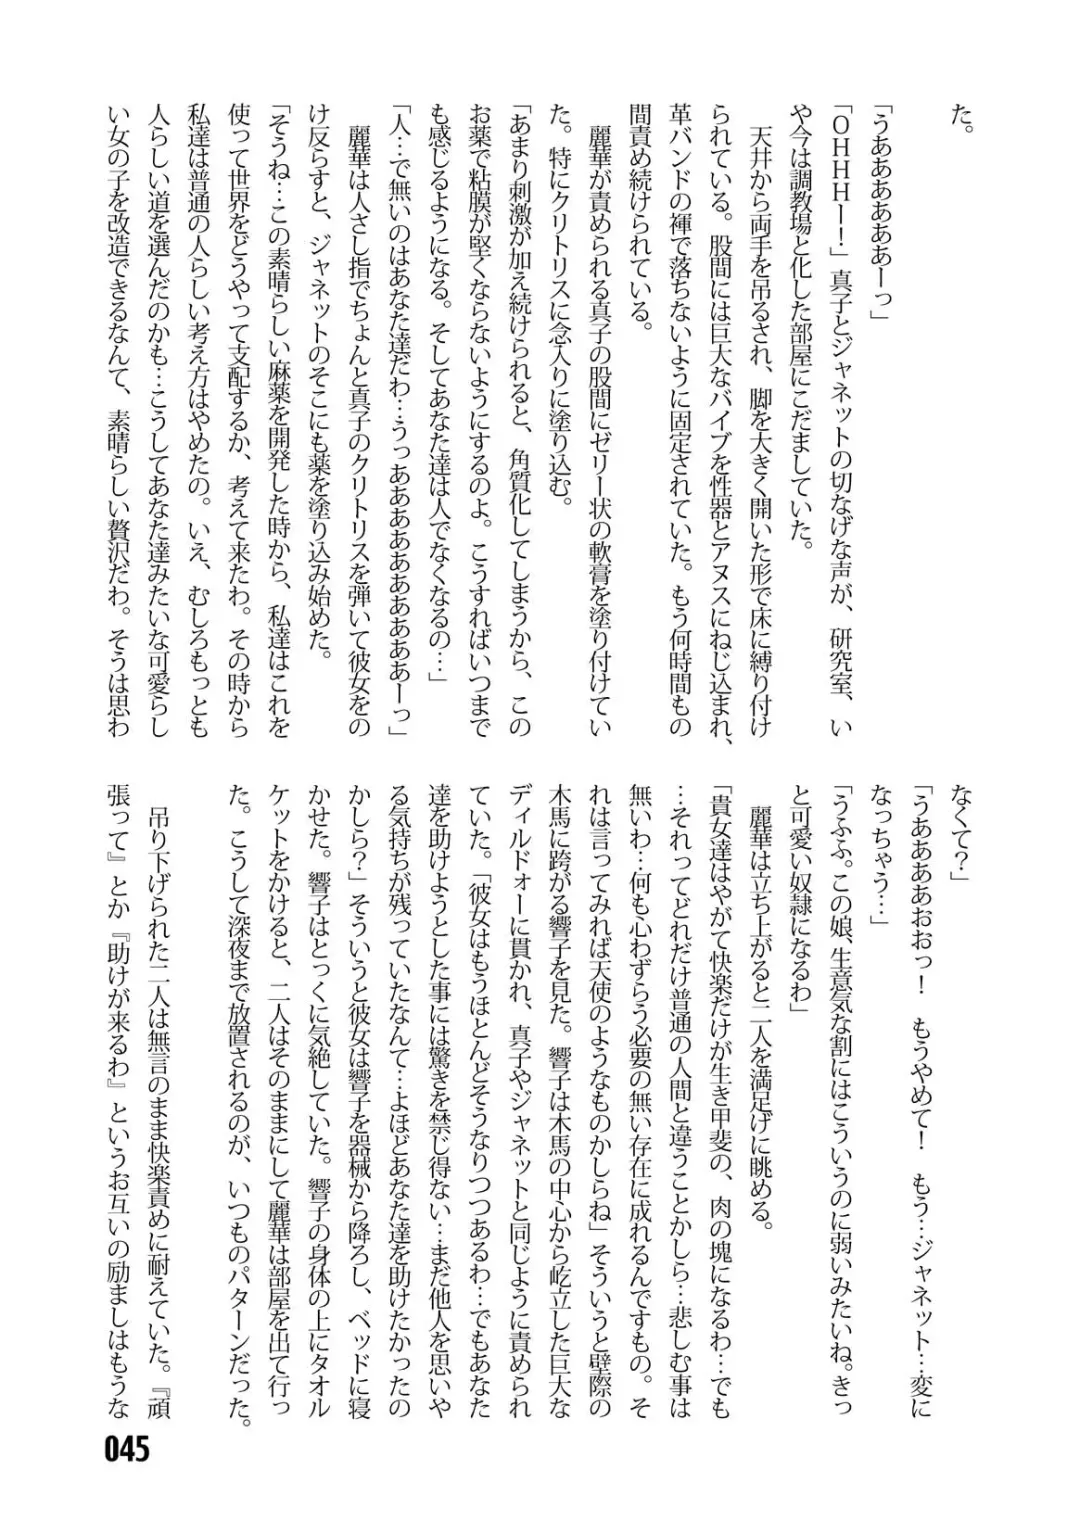 た。
「うああああああーっ」
「OHHHーー！」真子とジャネットの切なげな声が、研究室、い
や今は調教場と化した部屋にこだましていた。
天井から両手を吊るされ、脚を大きく開いた形で床に縛り付け
られている。股間には巨大なバイブを性器とアヌスにねじ込まれ、
革バンドの褌で落ちないように固定されていた。もう何時間もの
間責め続けられている。
麗華が責められる真子の股間にゼリー状の軟膏を塗り付けてい
た。特にクリトリスに念入りに塗り込む。
「あまり刺激が加え続けられると、角質化してしまうから、この
お薬で粘膜が堅くならないようにするのよ。こうすればいつまで
も感じるようになる。そしてあなた達は人でなくなるの…」
「人…で無いのはあなた達だわ…うっああああああああああーっ」
麗華は人さし指でちょんと真子のクリトリスを弾いて彼女をの
け反らすと、ジャネットのそこにも薬を塗り込み始めた。
「そうね…この素晴らしい麻薬を開発した時から、私達はこれを
使って世界をどうやって支配するか、考えて来たわ。その時から
私達は普通の人らしい考え方はやめたの。いえ、むしろもっとも
人らしい道を選んだのかも…こうしてあなた達みたいな可愛らし
い女の子を改造できるなんて、素晴らしい贅沢だわ。そうは思わ
なくて？」
「うああああおおっ！　もうやめて！　もう…ジャネット…変に
なっちゃう…」
「うふふ。この娘、生意気な割にはこういうのに弱いみたいね。きっ
と可愛い奴隷になるわ」
麗華は立ち上がると二人を満足げに眺める。
「貴女達はやがて快楽だけが生き甲斐の、肉の塊になるわ…でも
…それってどれだけ普通の人間と違うことかしら…悲しむ事は
無いわ…何も心わずらう必要の無い存在に成れるんですもの。そ
れは言ってみれば天使のようなものかしらね」そういうと壁際の
木馬に跨がる響子を見た。響子は木馬の中心から屹立した巨大な
ディルドォーに貫かれ、真子やジャネットと同じように責められ
ていた。「彼女はもうほとんどそうなりつつあるわ…でもあなた
達を助けようとした事には驚きを禁じ得ない…まだ他人を思いや
る気持ちが残っていたなんて…よほどあなた達を助けたかったの
かしら？」そういうと彼女は響子を器械から降ろし、ベッドに寝
かせた。響子はとっくに気絶していた。響子の身体の上にタオル
ケットをかけると、二人はそのままにして麗華は部屋を出て行っ
た。こうして深夜まで放置されるのが、いつものパターンだった。
吊り下げられた二人は無言のまま快楽責めに耐えていた。『頑
張って』とか『助けが来るわ』というお互いの励ましはもうな
045